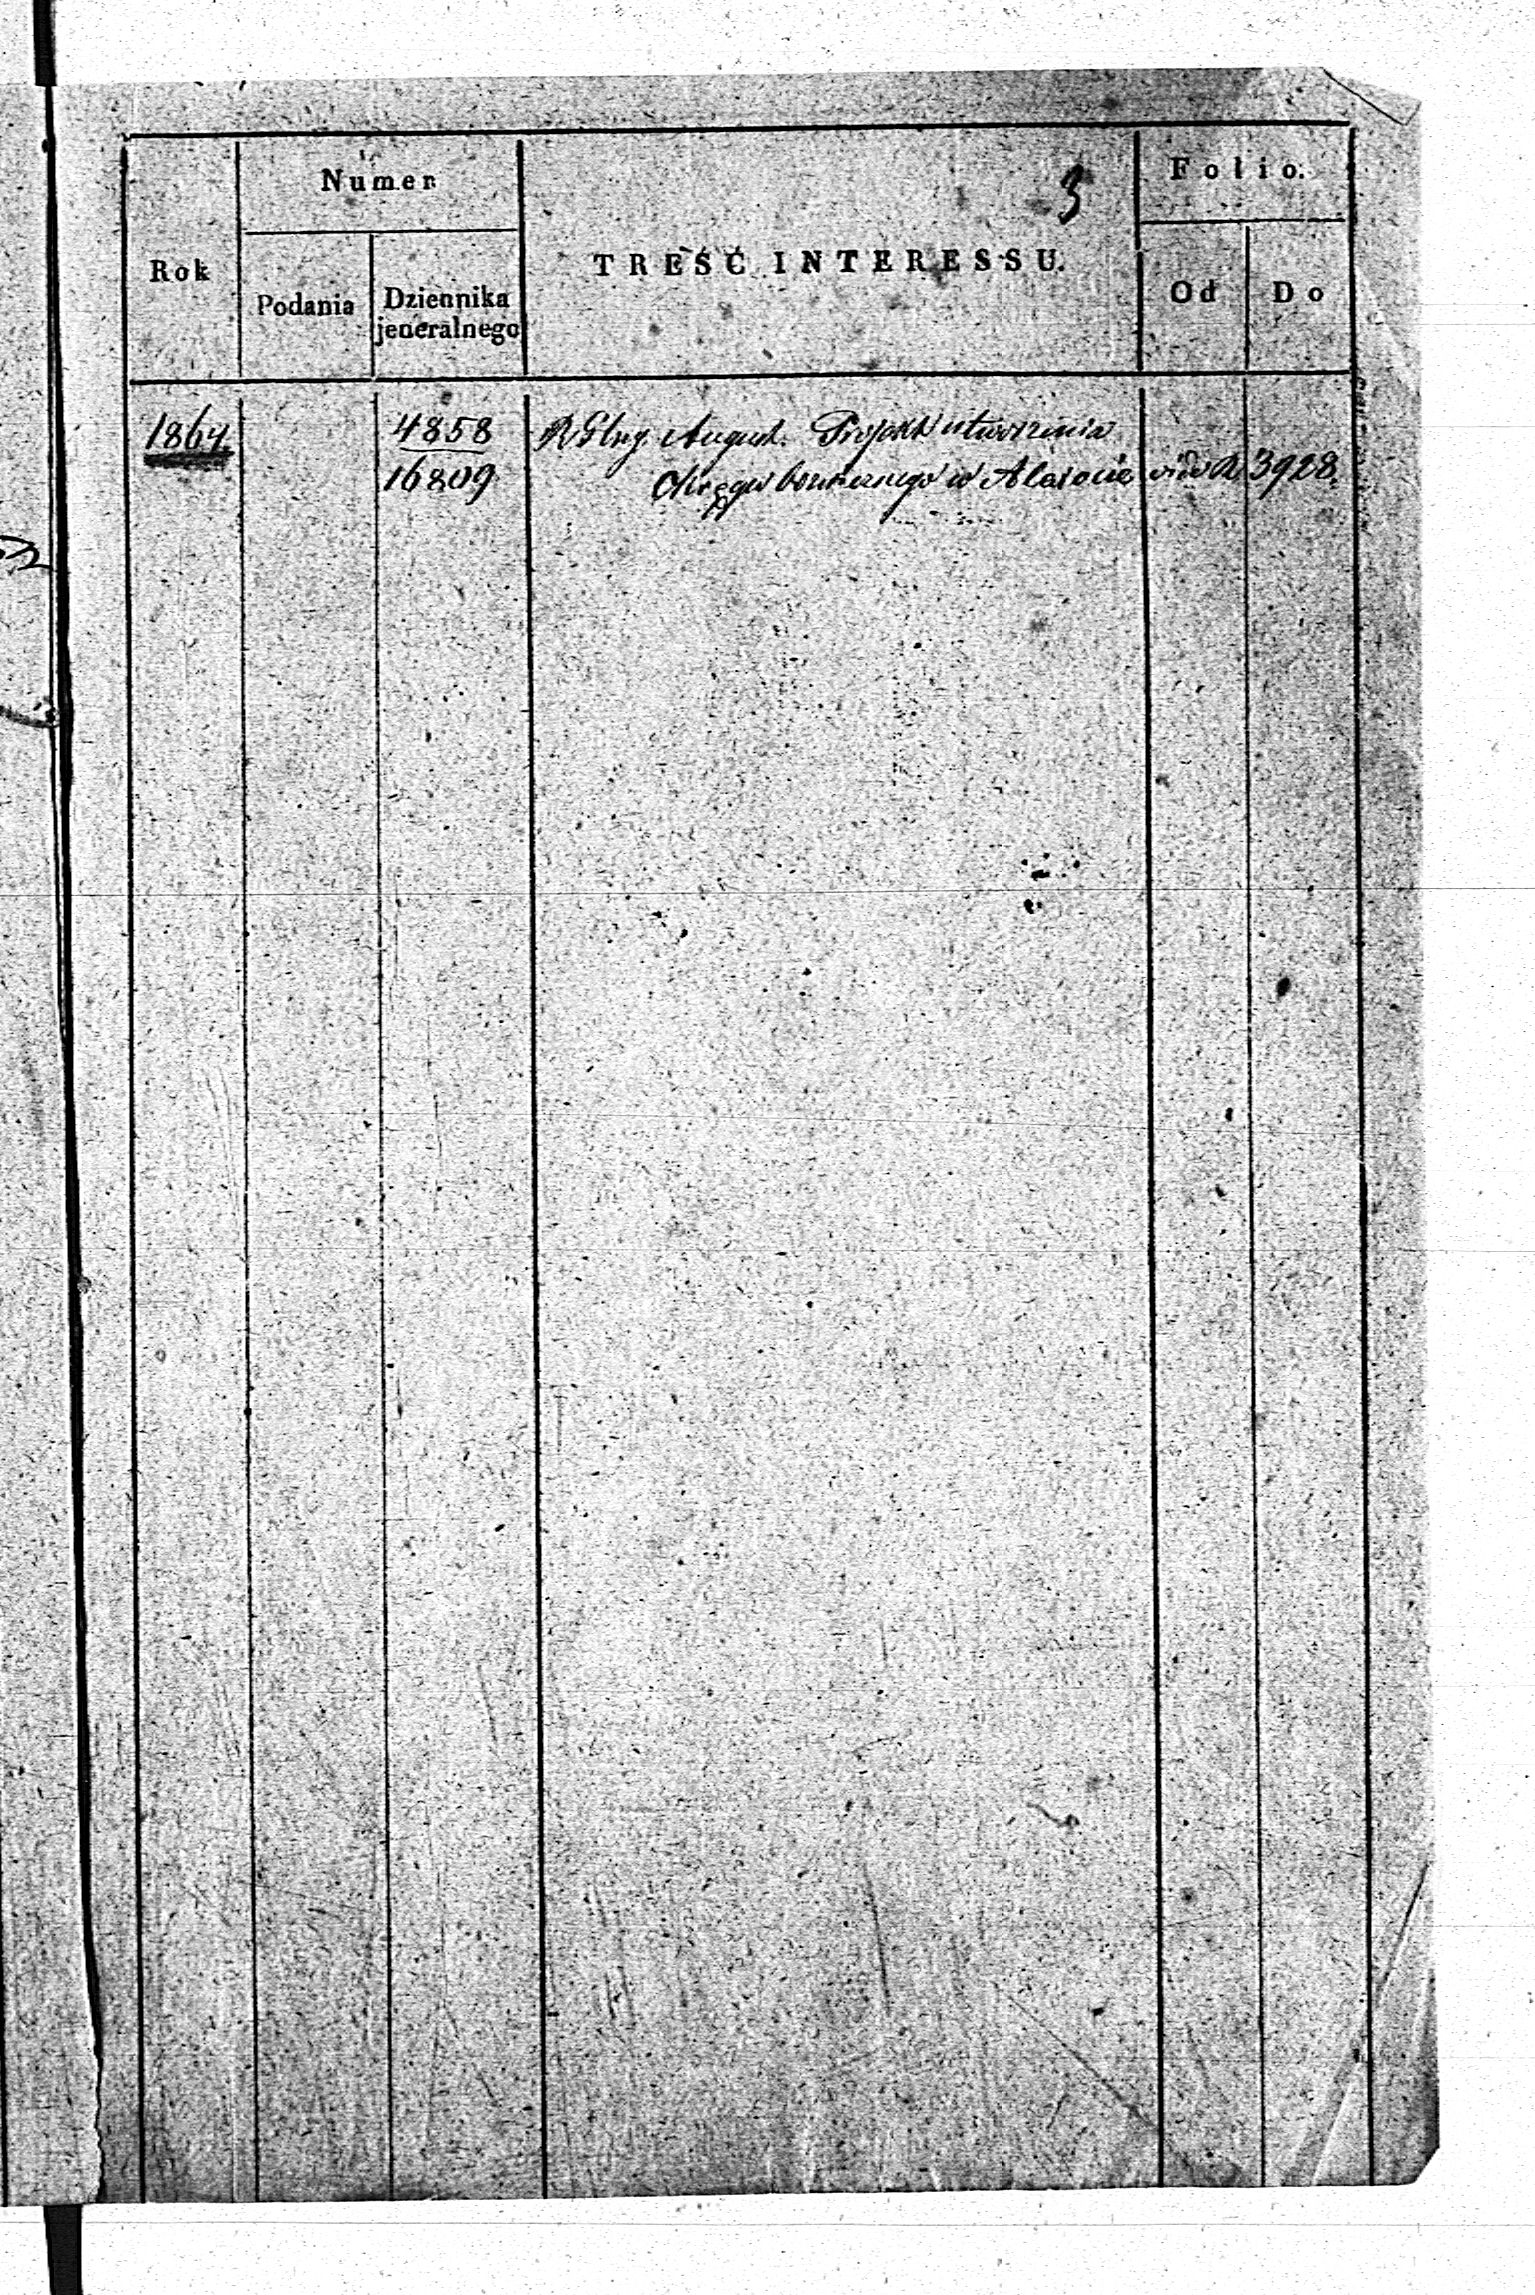 3
Rok
Numer
Podania
Dziennika
jeneralnego
TREŚĆ INTERESSU.
Folio.
Od
Do
1864
4858
16809
R Glny. August. Projekt utworzenia
Okręgu bożniczego w Alaxocie
vide R 3928.